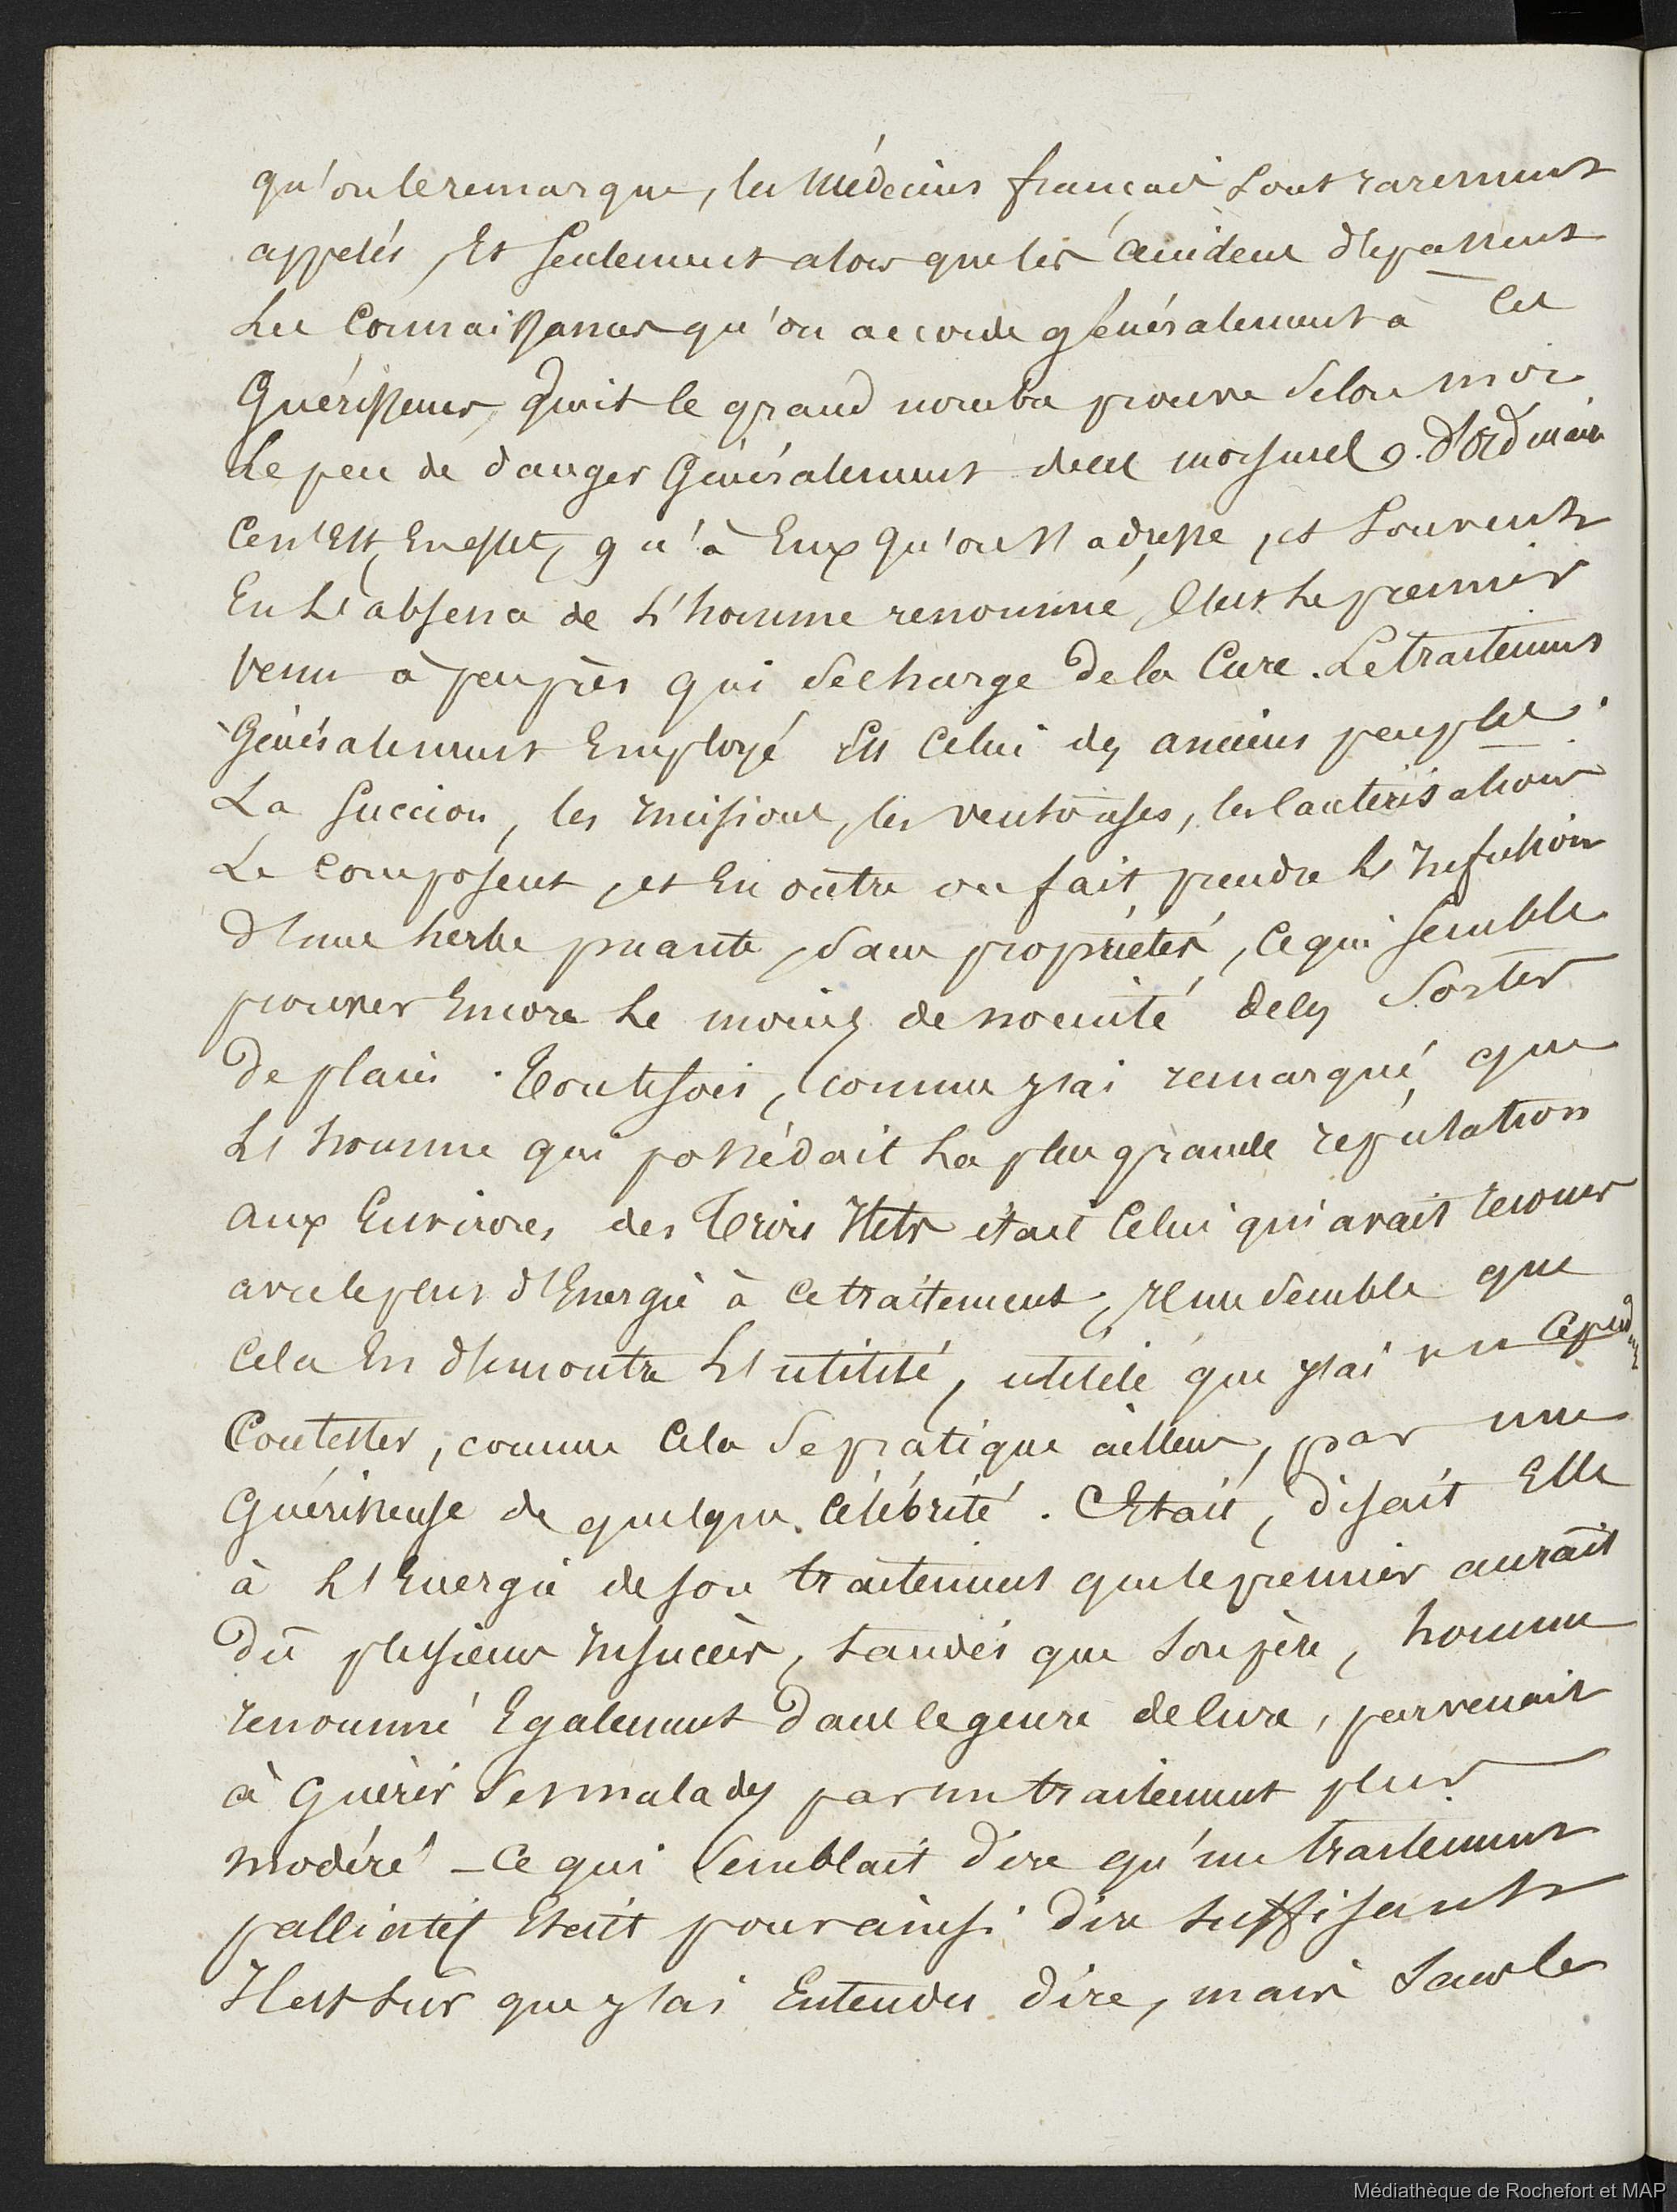 qu'on le remarque, les médecins français sont rarement
appelés, Et seulement alors que les accidens dépassent
Les Connaissances qu'on accorde généralement à Ces
Guérisseurs, dont le grand nombre prouve selon moi
Le peu de danger Généralement de ces morsures. D'ordinaire
Ce n'Est, En effet, qu'à Eux qu'on s'adresse, et souvent
En L'absence de L'homme renommé, C'est Le premier
venu à peu près qui se charge de la Cure. Le traitement
Généralement Employé Est Celui des anciens peuples.
La succion, les incisions, les ventouses, les cautérisations
Le composent, et En outre on fait prendre L'infusion
d'une herbe puante, sans propriétés, Ce qui semble
prouver Encore Le moins de nocuité de ces sortes
de plaies. Toutefois, comme j'ai remarqué que
L'homme qui possédait La plus grande réputation
aux Environs des Trois Ilets était Celui qui avait recours
avec le plus d'Energie à Ce traitement, il me semble que
Cela En démontre L'utilité, utilité que j'ai vu cepend^nt
Contester, comme Cela se pratique ailleurs, par une
Guérisseuse de quelque Célébrité. C'Etait, disait Elle
à L'Energie de son traitement que le premier aurait
dû plusieurs insuccès, tandis que son père, homme
renommé Egalement dans le genre de cure, parvenait
à Guérir ses malades par un traitement plus
modéré - Ce qui semblait dire qu'un traitement
palliatif Etait pour ainsi dire suffisant
Il est sûr que j'ai Entendu dire, mais sans le
Médiathèque de Rochefort et MAP